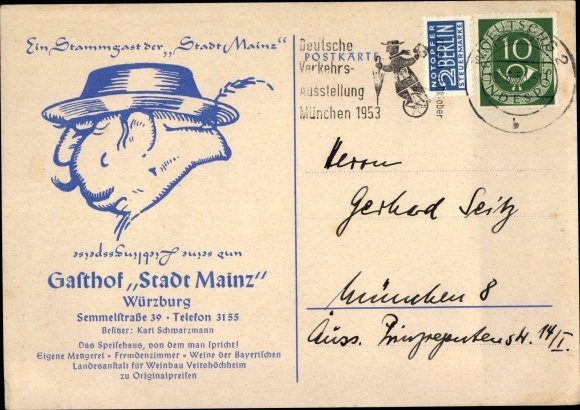 Ein Stammgast der „Stadt Mainz"
und seine Lieblingsspeise
Gasthof „Stadt Mainz"
Würzburg
Semmelstraße 39 · Telefon 3155
Besitzer: Karl Schwarzmann
Das Speisehaus, von dem man spricht!
Eigene Metzgerei · Fremdenzimmer · Weine der Bayerischen
Landesanstalt für Weinbau Veitshöchheim
zu Originalpreisen
POSTKARTE
Deutsche
Verkehrs-
Ausstellung
München 1953
Oktober
NOTOPFER
2 BERLIN
STEUERMARKE
DEUTSCHE
10
BUNDESPOST
2
b
Herrn
Gerhad Seitz
München 8
Äuss. Prinzregentenstr. 14/I.